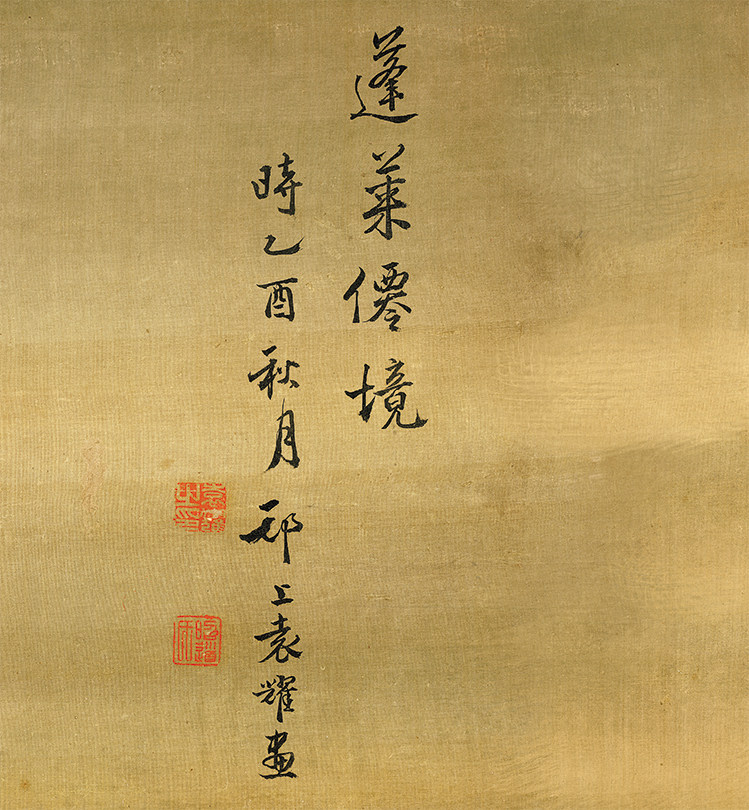 蓬莱僊境
時乙酉秋月邗上袁耀畫